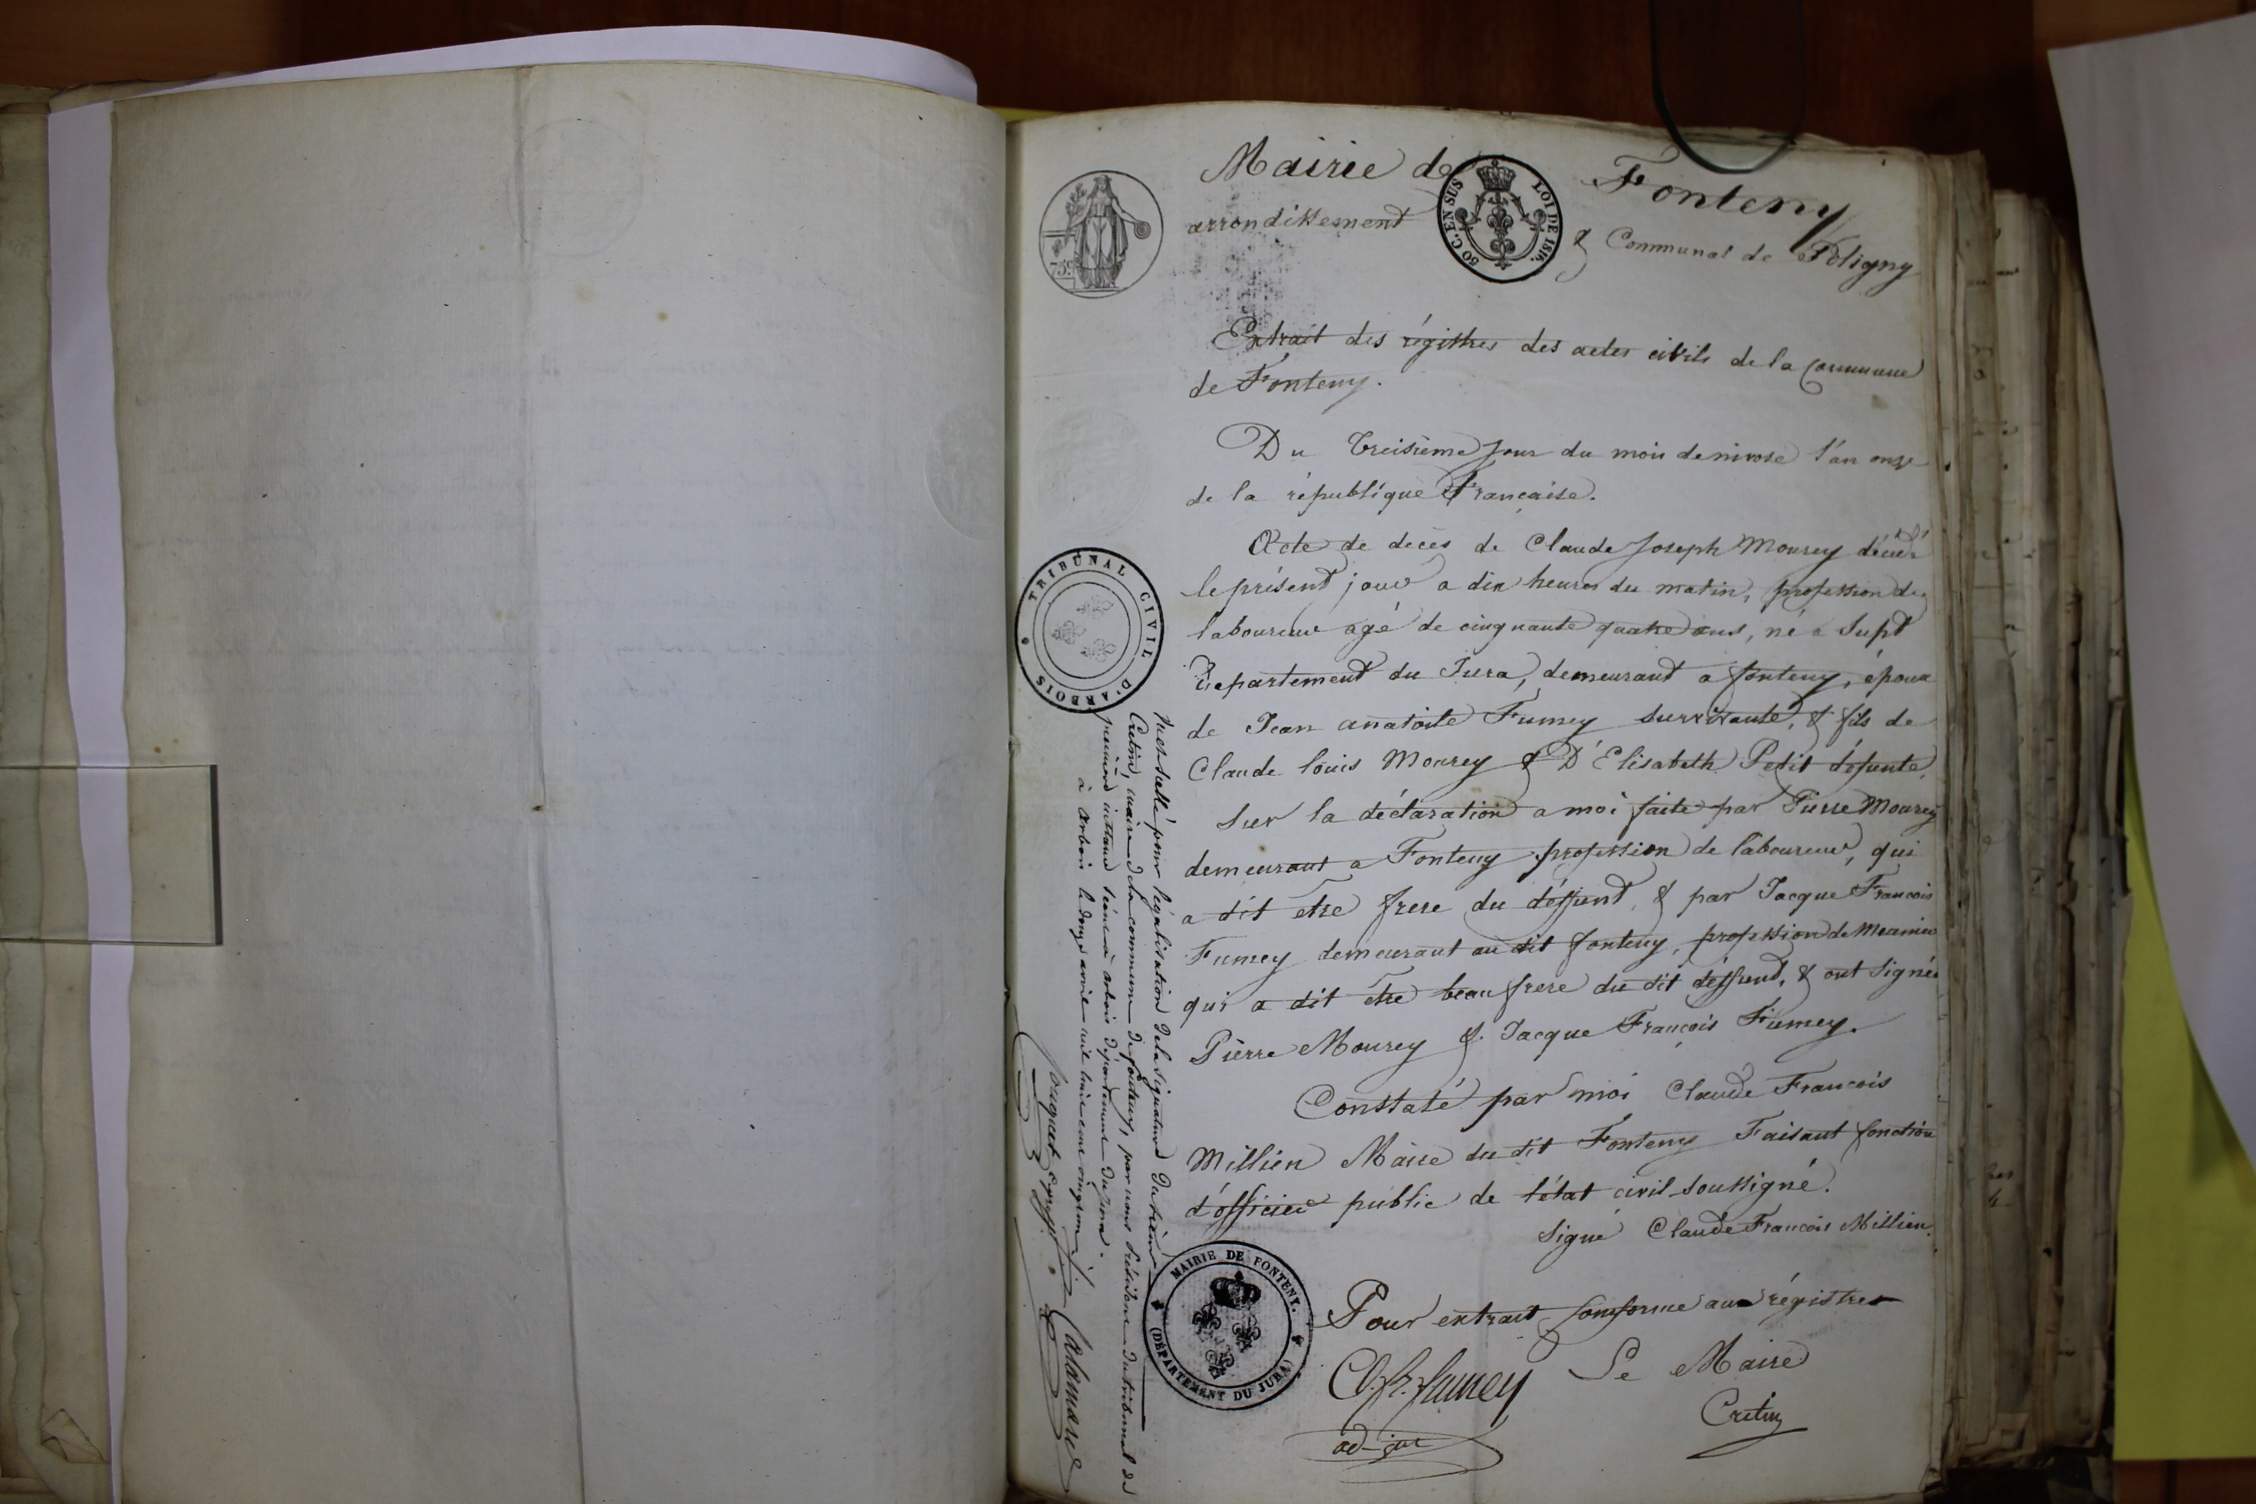 Mairie de Fonteny
arrondissement & Communal de Poligny
50 C. EN SUS LOI DE 1816.
75 c
Extrait des régistres des actes civils de la Commune
de Fonteny.
Du treisième Jour du mois de nivose l'an onze
de la républíque Française.
Acte de décès de Claude Joseph Mourey décédé
le présent jour a dix heures du matin, profession de
laboureur agé de cinquante quatre ans, né a Supt
Departement du Jura, demeurant a fonteny, époux
de Jean anatoile Fumey survivante, & fils de
Claude louis Mourey & D'Elisabeth Petit défunte,
Sur la déclaration a moi faite par Pierre Mourey
demeurant a Fonteny profession de laboureur, qui
a dit être frere du déffunt, & par Jacque François
Fumey demeurant au dit fonteny, profession de
qui a dit être beau frere du dit déffunt, & ont signés
Piérre Mourey & Jacque François Fumey.
Constaté par moi Claude François
Millien Maire du dit Fonteny Faisant fonction
d'officier public de l'état civil soussigné.
Signé Claude François Millien.
Pour extrait conforme aux régistres
Le Maire
Cretin
Fumey
ad-joint
MAIRIE DE FONTENY.
(DÉPARTEMENT DU JURA)
TRIBUNAL CIVIL D'ARBOIS
pour légalisation de la signature du sieur
Cretin, maire de la commune de fonteny, par nous Président du tribunal de
première instance séant à arbois département du jura.
à Arbois le douze avril mil huit cent